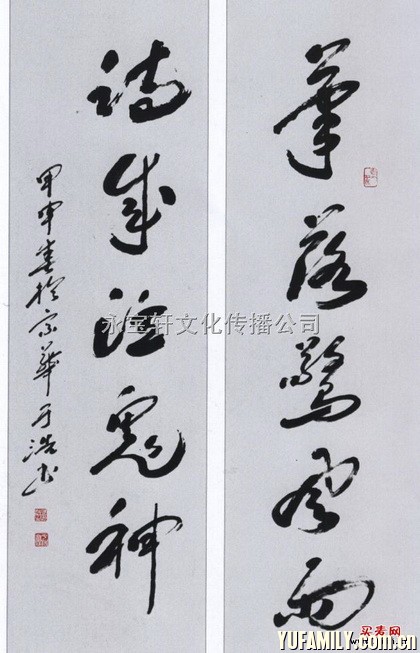 筆落驚風雨
詩成泣鬼神
甲申春於京華于浩書
永宝轩文化传播公司
买麦网
YUFAMILY.com.cn